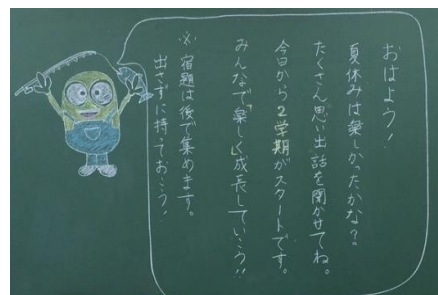 おはよう!
夏休みは楽しかったかな?
たくさん思い出話を聞かせてね。
今日から2学期がスタートです。
みんなで「楽しく」成長していこう!!
※ 宿題は後で集めます。
出さずに持っておこう!